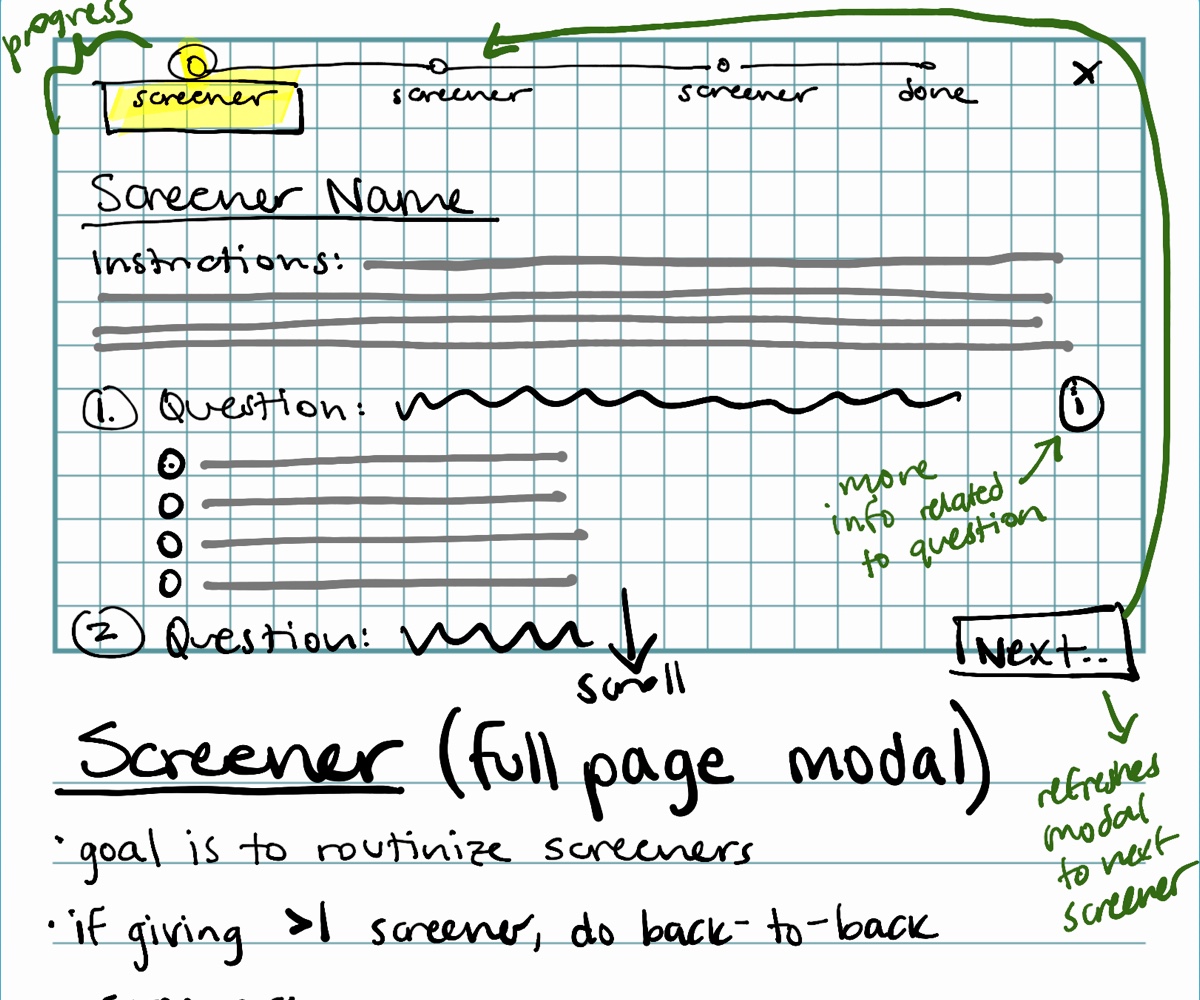 progress
screener screener screener done
x
Screener Name
Instructions:
1. Question:
i
more
info related
to question
2 Question:
scroll
Next...
Screener (full page modal)
refreshes
modal
to next
screener
· goal is to routinize screeners
· if giving >1 screener, do back-to-back